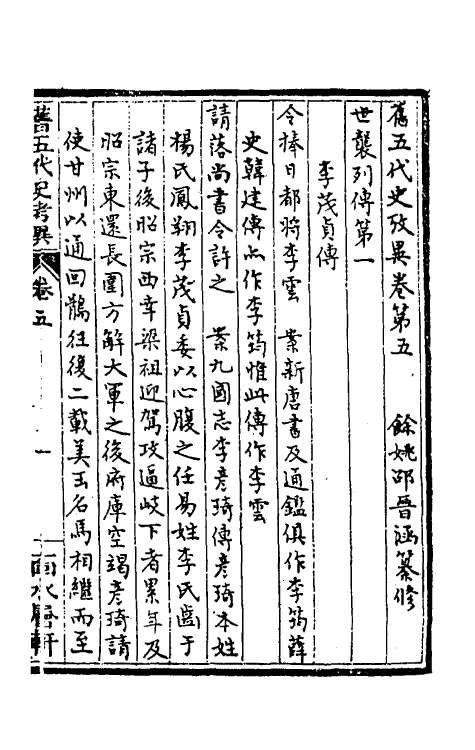 舊五代史攷異卷第五　　餘姚邵晉涵纂修
世襲列傳第一
李茂貞傳
令捧日都將李雲　案新唐書及通鑑俱作李筠薛
史韓建傳亦作李筠惟此傳作李雲
請落尚書令許之　案九國志李彥琦傳彥琦本姓
楊氏鳳翔李茂貞委以心腹之任易姓李氏齒于
諸子後昭宗西幸梁祖迎駕攻逼岐下者累年及
昭宗東還長圍方解大軍之後府庫空竭彥琦請
使甘州以通回鶻往復二載美玉名馬相繼而至
舊五代史考異　卷五　一　面水層軒